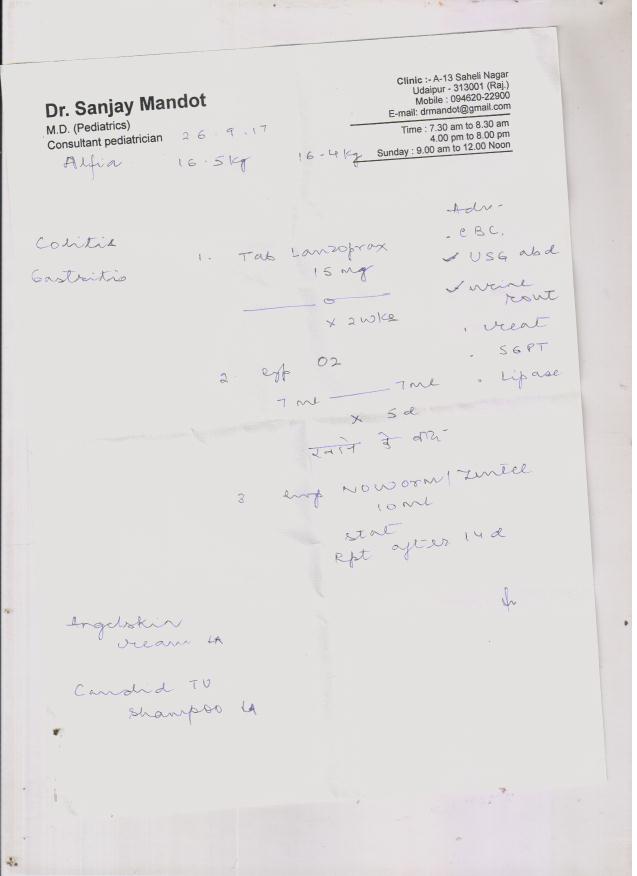 Dr. Sanjay Mandot
M.D. (Pediatrics)
Consultant pediatrician
Clinic :- A-13 Saheli Nagar
Udaipur - 313001 (Raj.)
Mobile : 094620-22900
E-mail: drmandot@gmail.com
Time : 7.30 am to 8.30 am
4.00 pm to 8.00 pm
Sunday : 9.00 am to 12.00 Noon
26.9.17
Alfia 16.5kg 16.4kg
Colitis
Gastritis
1. Tab Lanzoprax
15 mg
0
x 2 wks
2. syp O2
7 ml 7 ml
x 5d
खाने के बाद
3 syp NOWORM/Zentel
10 ml
stat
Rpt after 14 d
Adv-
. CBC.
✓ USG abd
✓ urine
rout
. creat
. SGPT
. Lipase
Angelskin
cream LA
Candid TV
shampoo LA